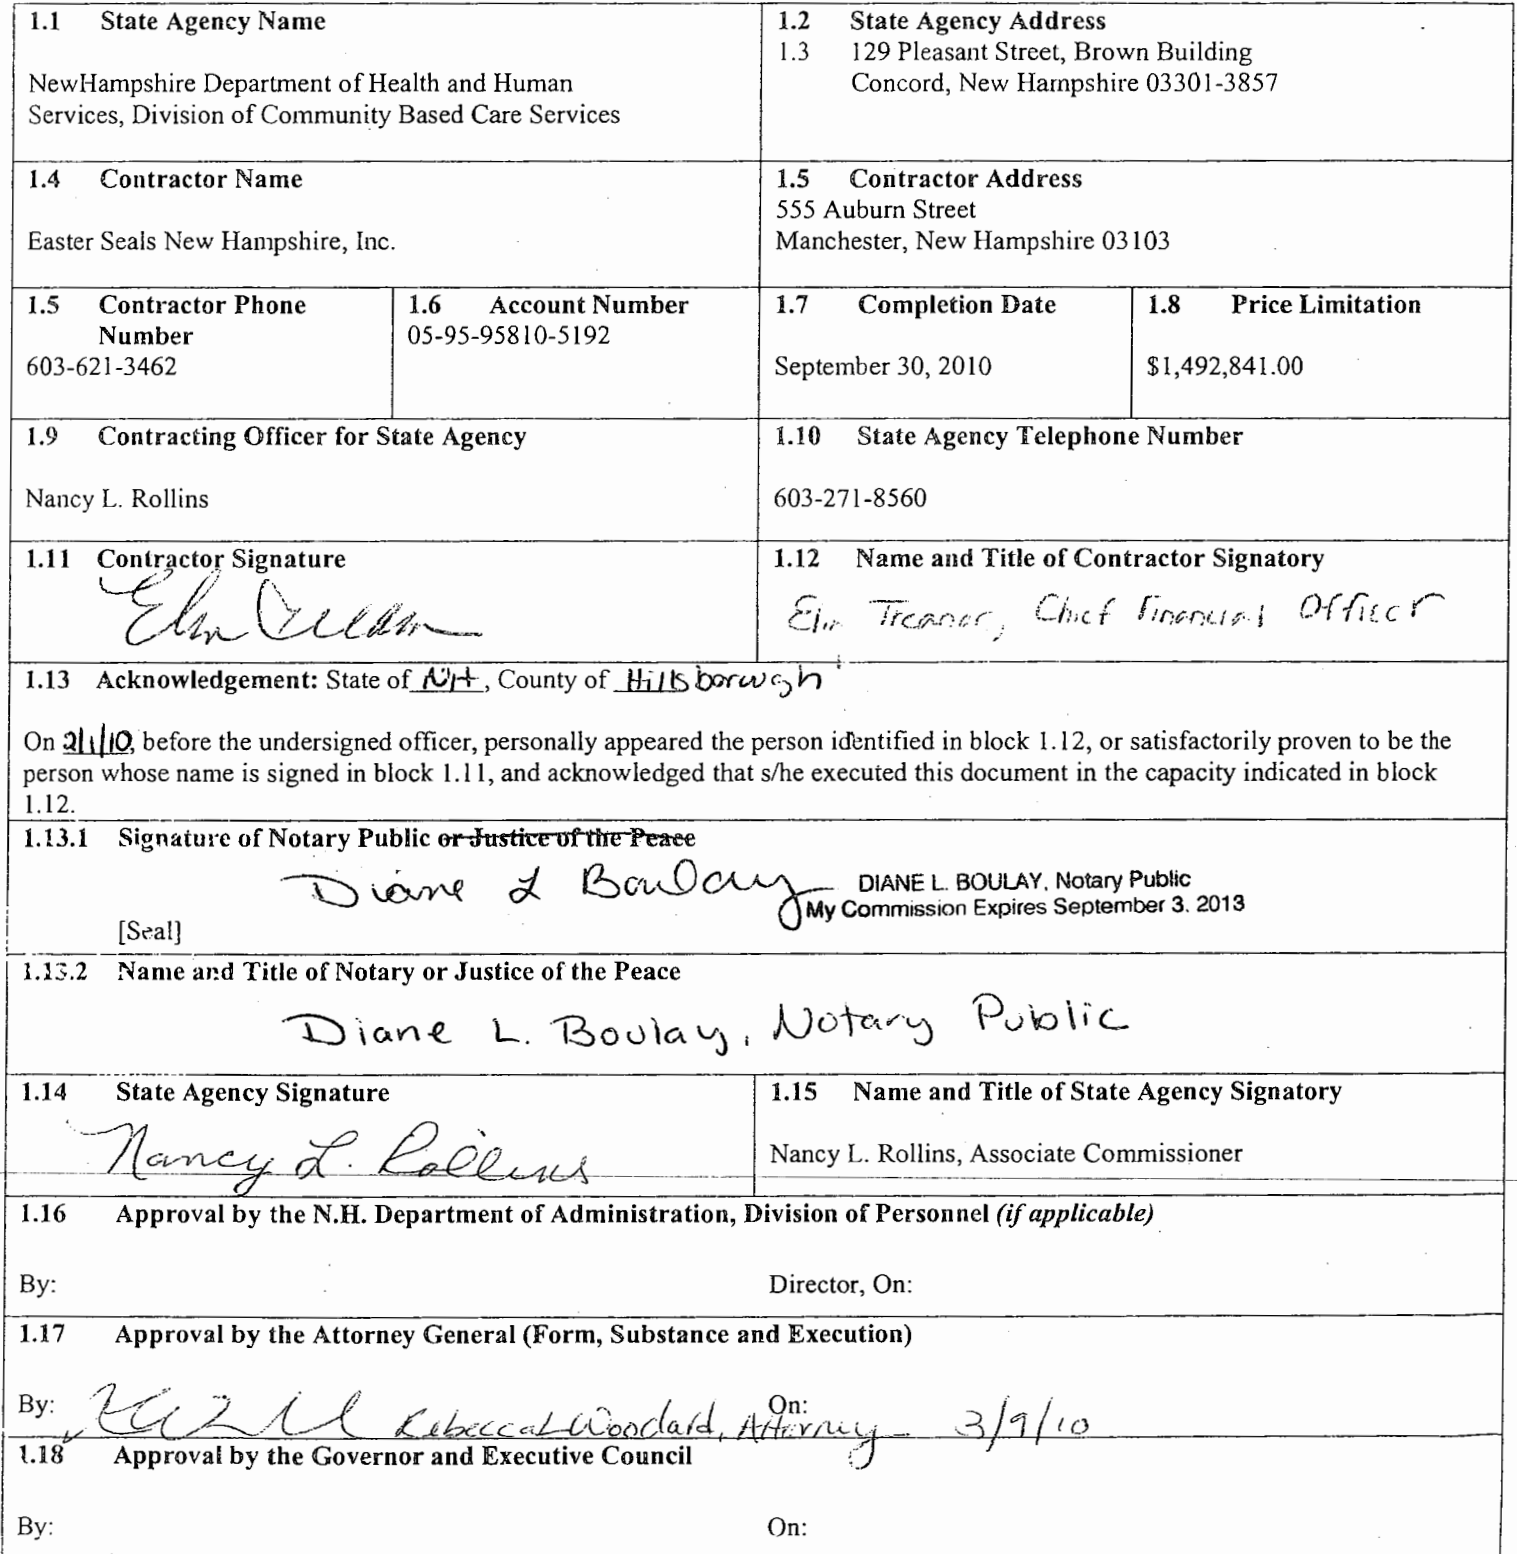 1.1 State Agency Name
NewHampshire Department of Health and Human
Services, Division of Community Based Care Services
1.2 State Agency Address
1.3 129 Pleasant Street, Brown Building
Concord, New Hampshire 03301-3857
1.4 Contractor Name
Easter Seals New Hampshire, Inc.
1.5 Contractor Address
555 Auburn Street
Manchester, New Hampshire 03103
1.5 Contractor Phone
Number
603-621-3462
1.6 Account Number
05-95-95810-5192
1.7 Completion Date
September 30, 2010
1.8 Price Limitation
$1,492,841.00
1.9 Contracting Officer for State Agency
Nancy L. Rollins
1.10 State Agency Telephone Number
603-271-8560
1.11 Contractor Signature
1.12 Name and Title of Contractor Signatory
Treanor, Chief Financial Officer
1.13 Acknowledgement: State of NH, County of Hillsborough
On 2/1/10, before the undersigned officer, personally appeared the person identified in block 1.12, or satisfactorily proven to be the
person whose name is signed in block 1.11, and acknowledged that s/he executed this document in the capacity indicated in block
1.12.
1.13.1 Signature of Notary Public or Justice of the Peace
Diane L Boulay
DIANE L. BOULAY, Notary Public
My Commission Expires September 3, 2013
[Seal]
1.13.2 Name and Title of Notary or Justice of the Peace
Diane L. Boulay, Notary Public
1.14 State Agency Signature
Nancy L. Rollins
1.15 Name and Title of State Agency Signatory
Nancy L. Rollins, Associate Commissioner
1.16 Approval by the N.H. Department of Administration, Division of Personnel (if applicable)
By: Director, On:
1.17 Approval by the Attorney General (Form, Substance and Execution)
By: Rebecca L Woodard, Attorney On: 3/9/10
1.18 Approval by the Governor and Executive Council
By: On: